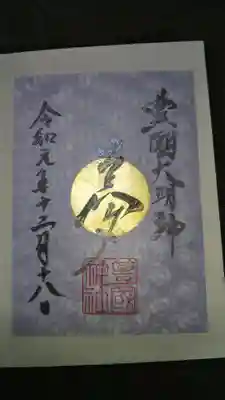 豊國大明神
令和元年十二月十八日
豊國
神社